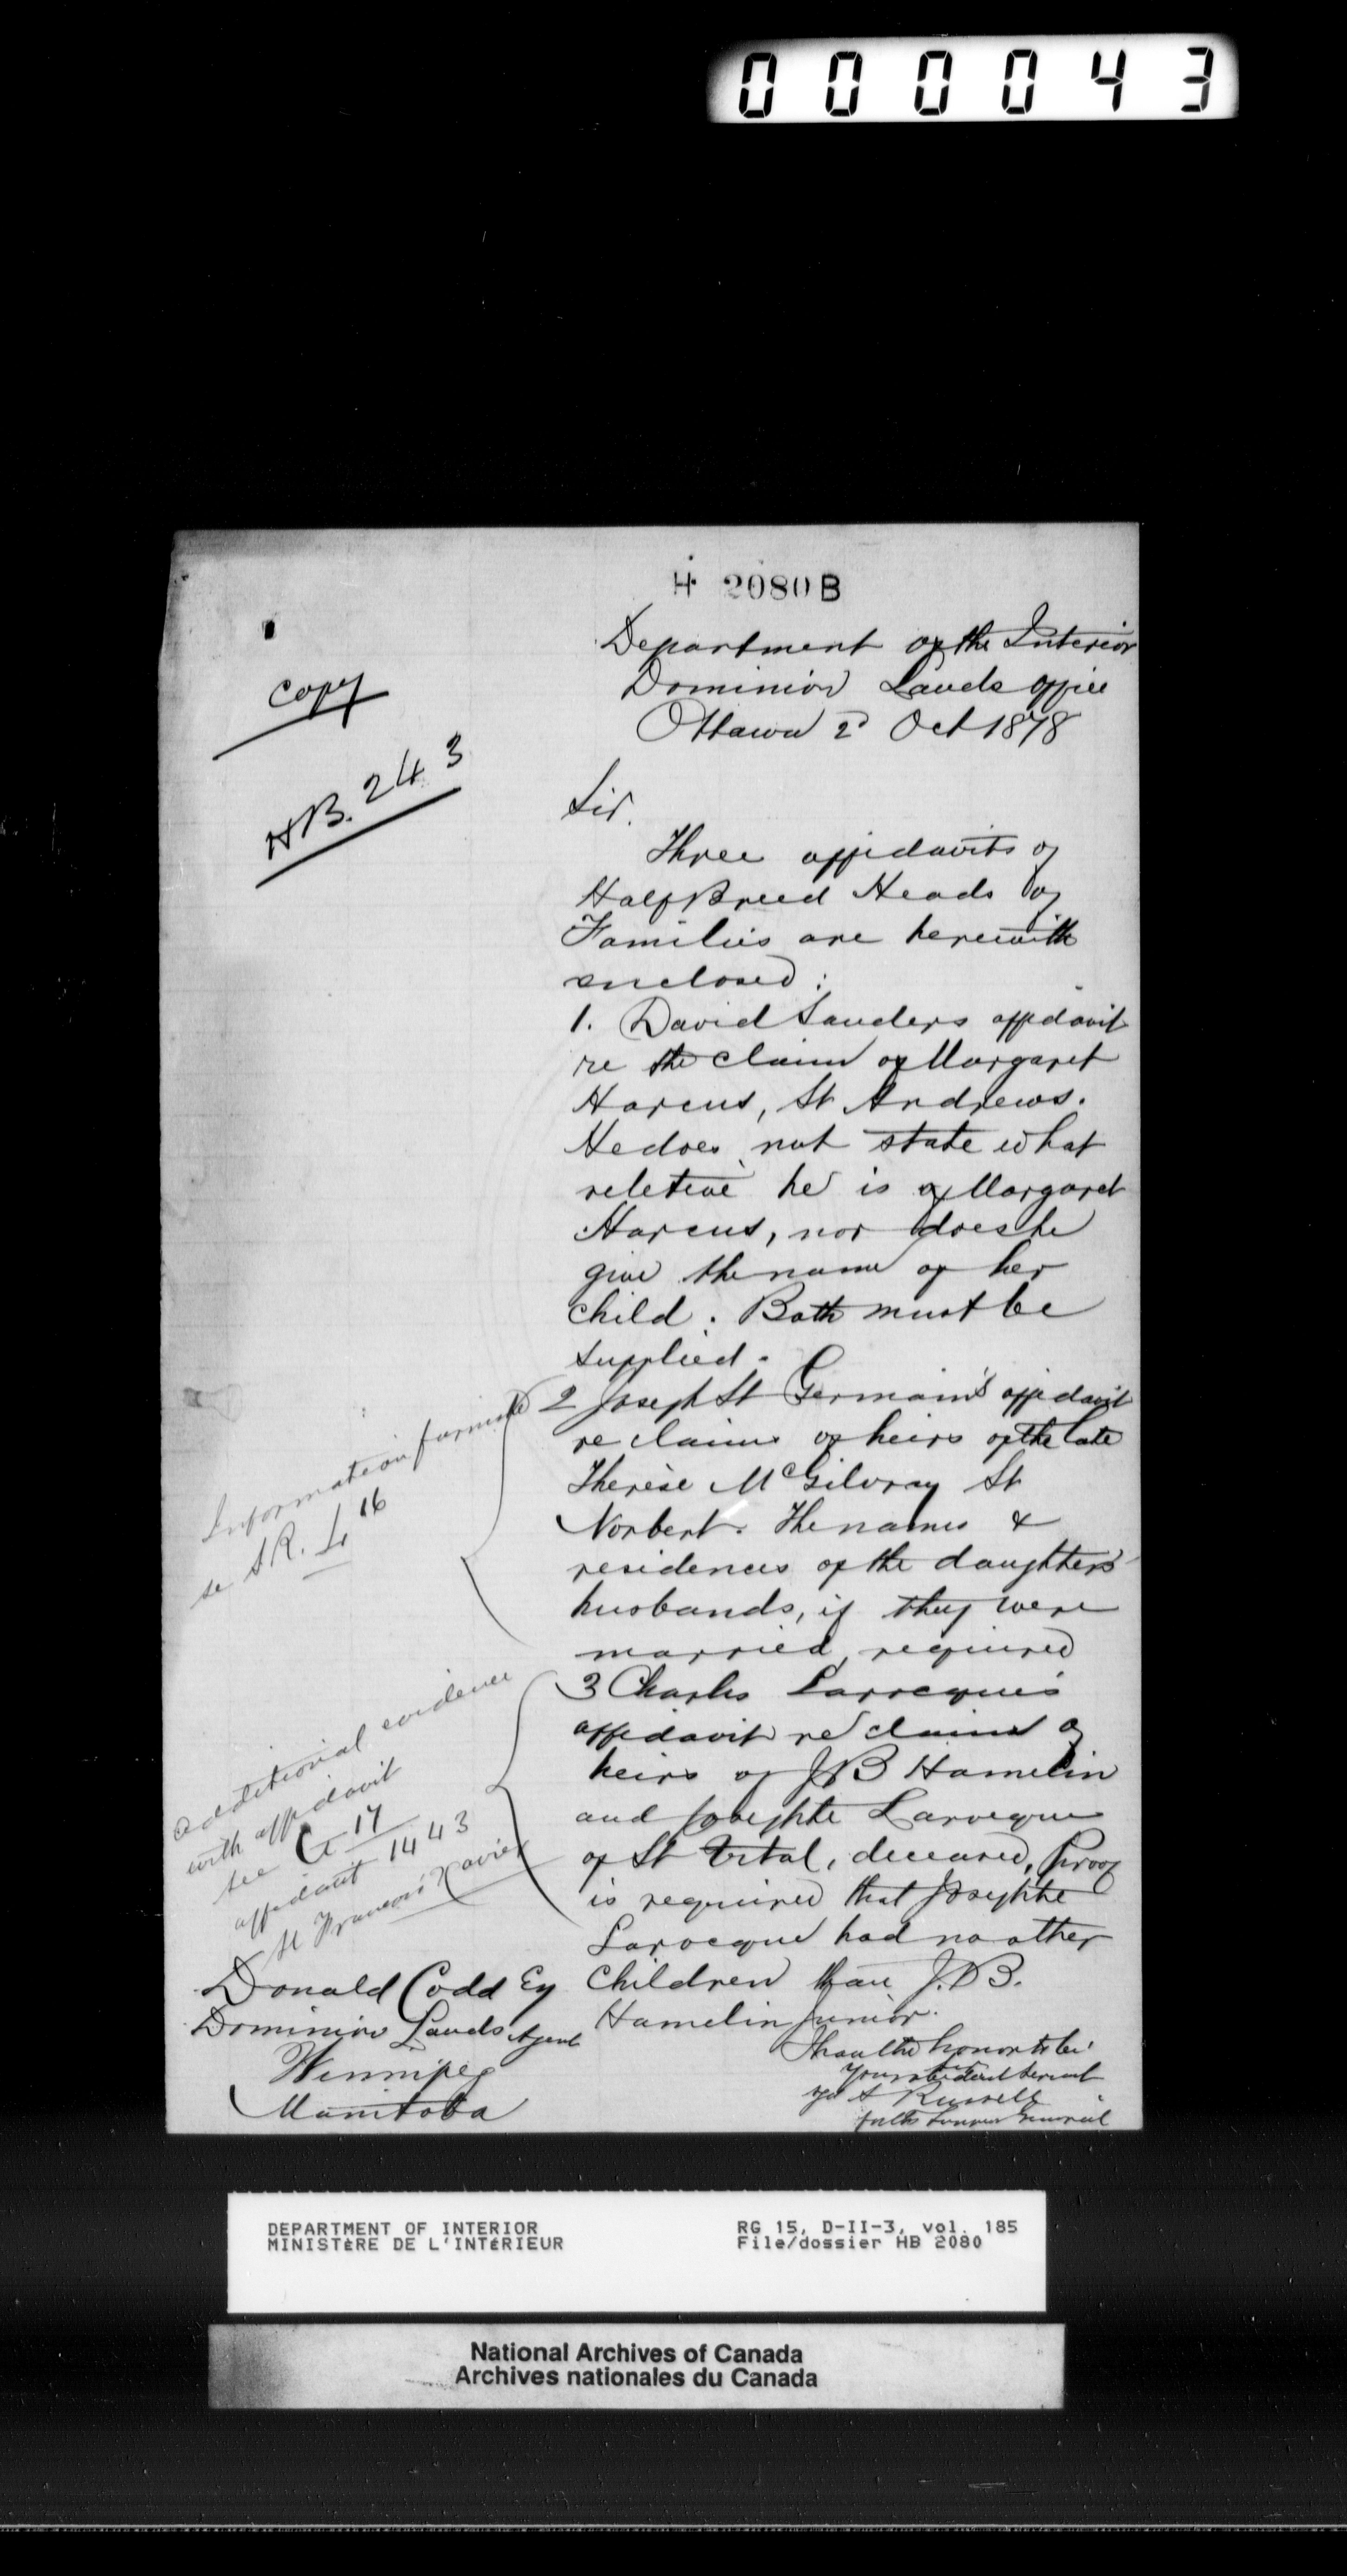 000043
H 2080 B
Department of the Interior
Dominion Lands Office
Ottawa 2d Oct 1878
Copy
HB. 243
Sir,
Three affidavits of
Half Breed Heads of
Families are herewith
enclosed:
1. David Sanders affidavit
re the claim of Margaret
Harcus, St Andrews.
He does not state what
reletive he is of Margaret
Harcus, nor does he
give the name of her
child. Both must be
supplied.
2 Joseph St Germain's affidavit
re claims of heirs of the late
Therèse McGilvray St
Norbert. The names &
residences of the daughters
husbands, if they were
married, required
3 Charles Larocque's
affidavit re claims of
heirs of JB Hamelin
and Josephte Larocque
of St Vital, deceased, Proof
is required that Josephte
Larocque had no other
Children than J.B.
Hamelin Junior.
I have the honor to be
Your obedient servant
A Russell
for the Surveyor General
Information furnished
se S.R. L 16
additional evidence
with affidavit
see G 17
affidavit 1443
St François Xavier
Donald Codd Esq
Dominion Lands Agent
Winnipeg
Manitoba
DEPARTMENT OF INTERIOR
MINISTÈRE DE L'INTÉRIEUR
RG 15, D-II-3, vol. 185
File/dossier HB 2080
National Archives of Canada
Archives nationales du Canada